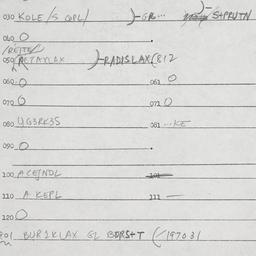 030 KOLE/S QPL/ )-GR... )- S+PRUTN
040 O
050 RETAXLAX )-RADISLAX(812
060 O 061 O
070 O 071 O
080 UG3RK3S 081 ...KE
090 O .
100 ACEJNDL 101
110 A KEPL 111 —
120 O
201 BUR2KLAX G2 BDRS+T (197031